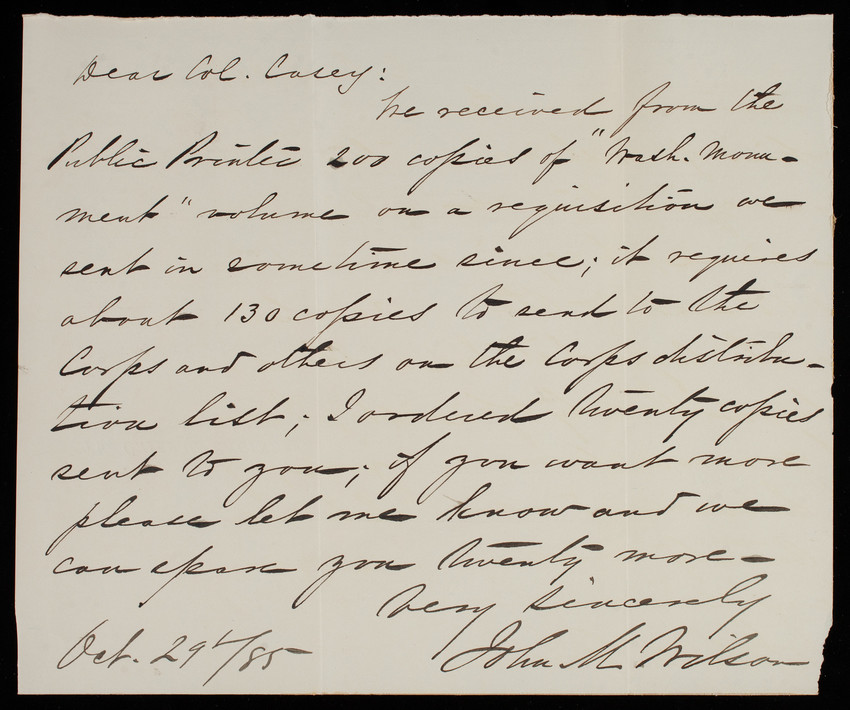 Dear Col. Casey:
We received from the
Public Printer 200 copies of "Wash. Monu-
ment" volume on a requisition we
sent in sometime since; it requires
about 130 copies to send to the
Corps and others on the Corps distribu-
tion list; I ordered twenty copies
sent to you; if you want more
please let me know and we
can spare you twenty more-
Very sincerely
John M Wilson
Oct. 29th/85